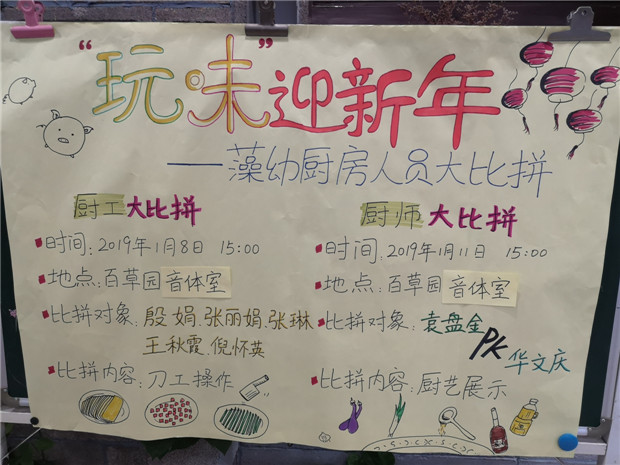 “玩味”迎新年
——藻幼厨房人员大比拼
厨工大比拼
时间：2019年1月8日 15:00
地点：百草园 音体室
比拼对象：殷娟.张丽娟.张琳
王秋霞.倪怀英
比拼内容：刀工操作
厨师大比拼
时间：2019年1月11日 15:00
地点：百草园 音体室
比拼对象：袁盘金
PK 华文庆
比拼内容：厨艺展示